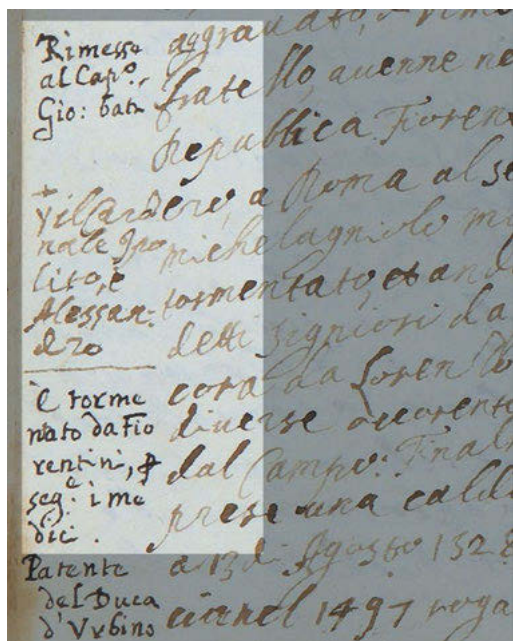 Rimesse
al Cap.º
Gio: bata
+
vil Cardero,
nale Ipo
lito, è
Alessan-
dro
È torme
nato da Fio
rentini, 
seg.e i me
dici.
Patente
del Duca
d'Vrbino
aggrauato,
fratello, auenne ne
Republica Fioren
a Roma al se
michelagniolo m
tormentato, et and
detti signiori da
cora da Loren
diuerse ocorente
dal Campo: Final
prese una cald
a 13 di Agosto 152
nel 1497 roga